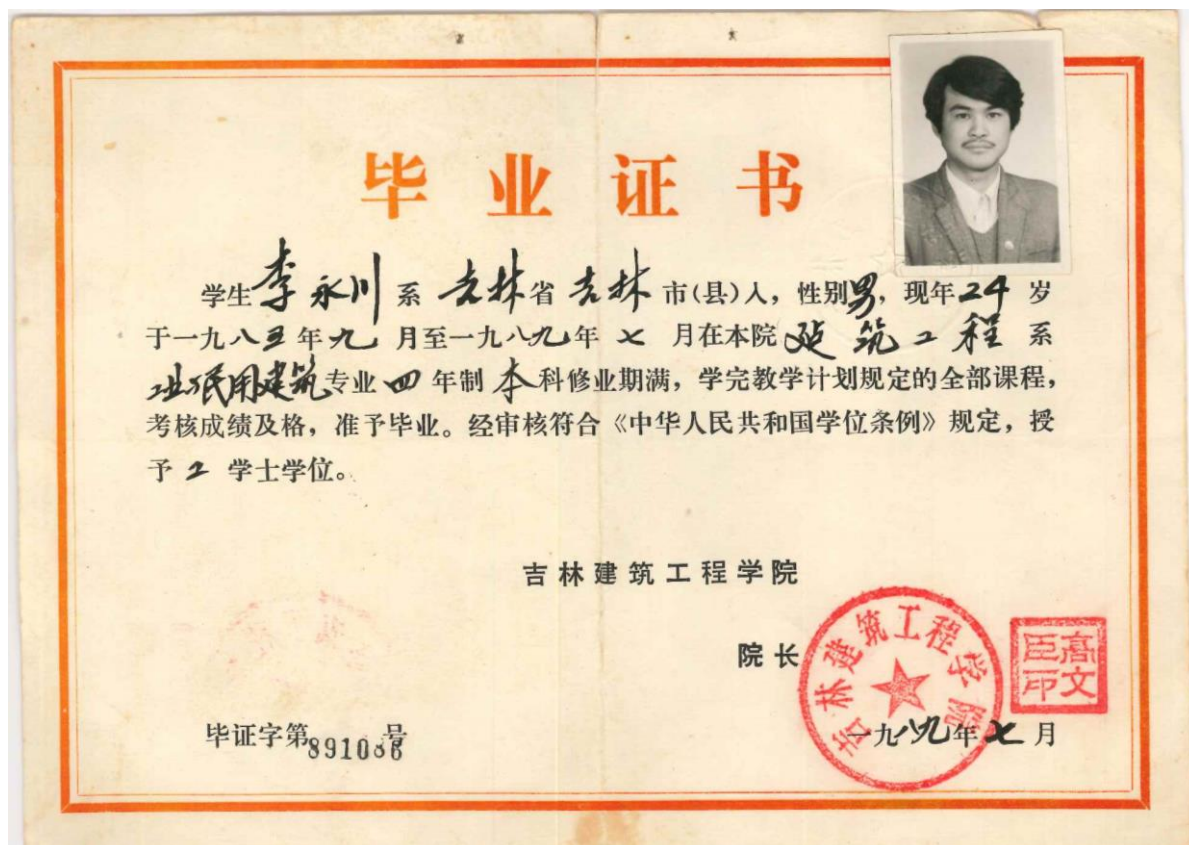 毕业证书
学生李永川系吉林省吉林市(县)人，性别男，现年24岁
于一九八五年九月至一九八九年七月在本院建筑工程系
工业民用建筑专业四年制本科修业期满，学完教学计划规定的全部课程，
考核成绩及格，准予毕业。经审核符合《中华人民共和国学位条例》规定，授
予工学士学位。
吉林建筑工程学院
院长
高文臣印
吉林建筑工程学院
一九八九年七月
毕证字第891086号